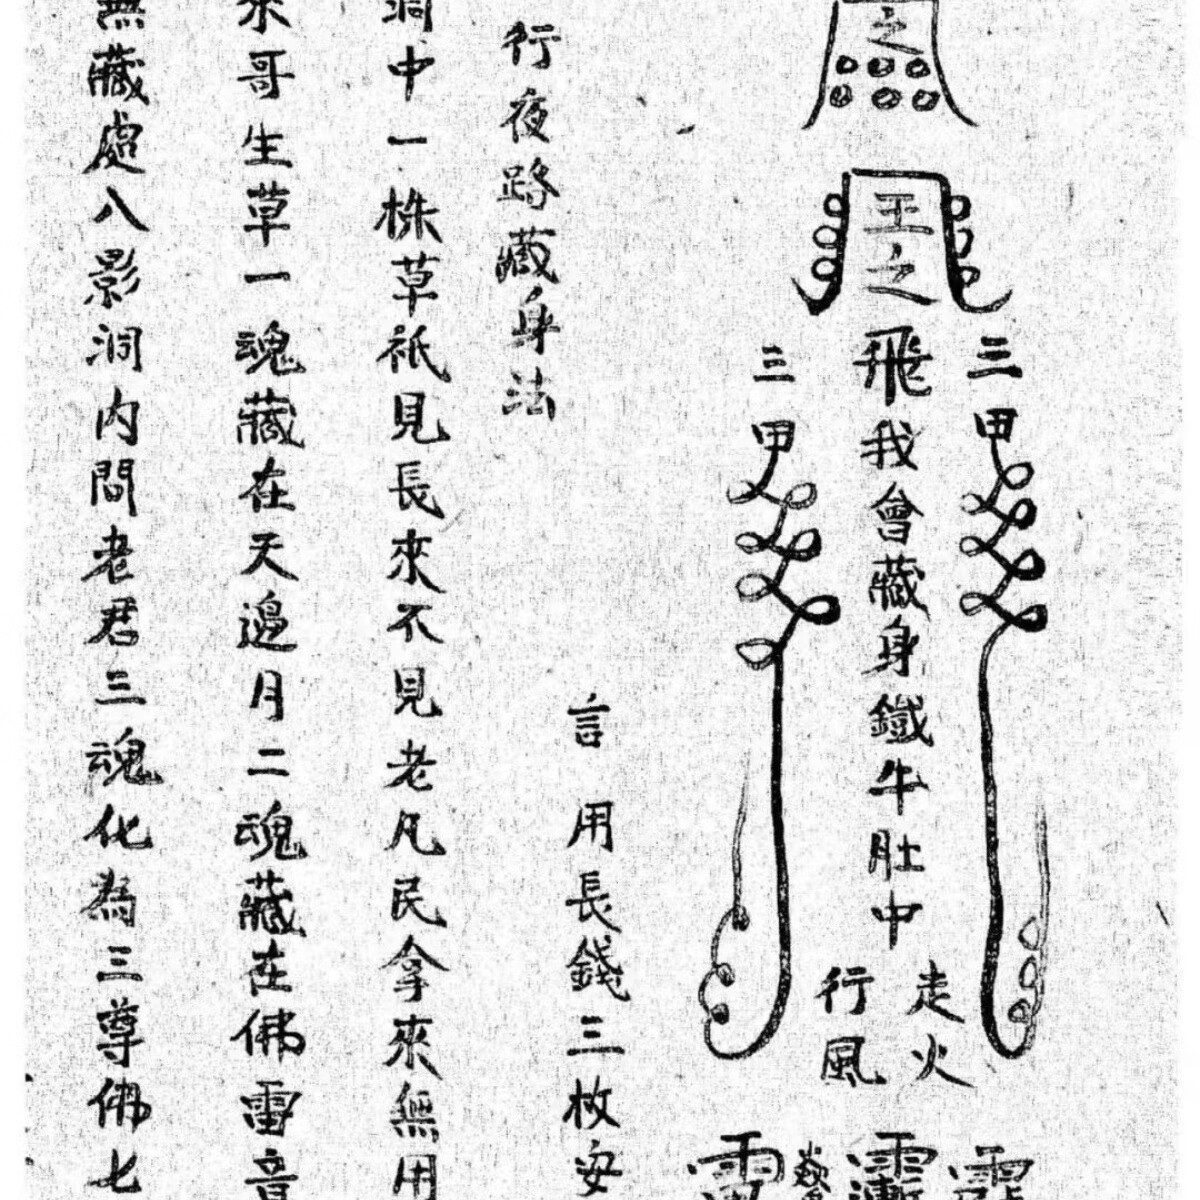 之
王之
飛我會藏身鐵牛肚中
三甲
三甲
走火
行風
言用長錢三枚安
行夜路藏身法
洞中一株草祇見長來不見老凡民拿來無用
哥生草一魂藏在天邉月二魂藏在佛雷音
無藏處入影洞内問老君三魂化為三尊佛七